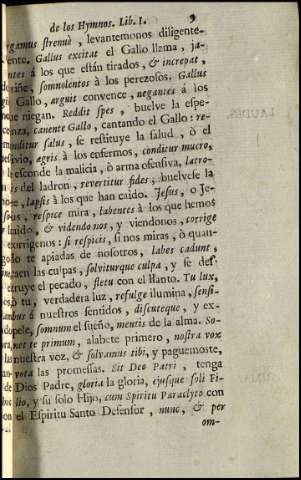 de los Hymnos. Lib. I. 9
rgamus strenuè, levantemonos diligente-
ente. Gallus excitat el Gallo llama, ja-
ntes á los que están tirados, & increpat,
riñe, somnolentos à los perezosos. Gallus
Gallo, arguit convence, negantes á los
ue niegan. Reddit spes, buelve la espe-
nza, canente Gallo, cantando el Gallo: re-
nditur salus, se restituye la salud, ò el
vio, agris à los enfermos, conditur mucro,
esconde la malicia, ò arma ofensiva, latro-
is del ladron, revertitur fides, buelvele la
e, lapsis à los que han caído. Jesus, o Je-
respice mira, labentes à los que hemos
aido, & videndo nos, y viendonos, corrige
corrigenos: si respicis, si nos miras, ò quan-
o te apiadas de nosotros, labes cadunt,
caen las culpas, solviturque culpa, y se des-
truye el pecado, fletu con el llanto. Tu lux,
ò tu, verdadera luz, refulge ilumina, sensi-
bus à nuestros sentidos, discuteque, y ex-
pele, somnum el sueño, mentis de la alma.
te primum, alabete primero, nostra vox
nuestra voz, & solvamus tibi, y paguemoste,
vota las promessas. Sit Deo Patri, tenga
Dios Padre, gloria la gloria, ejusque soli Fi-
lio, y su solo Hijo, cum Spiritu Paraclyto con
el Espiritu Santo Defensor, nunc, & per
om-
LAUDES.